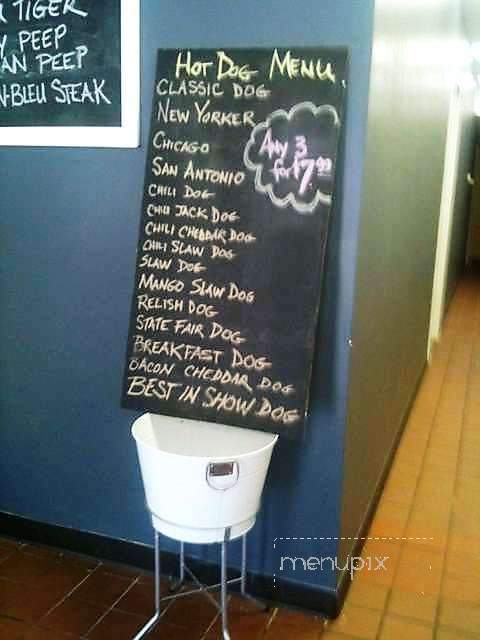 TIGER
PEEP
AN PEEP
N-BLEU STEAK
HOT DOG MENU
CLASSIC DOG
NEW YORKER
CHICAGO
SAN ANTONIO
CHILI DOG
CHILI JACK DOG
CHILI CHEDDAR DOG
CHILI SLAW DOG
SLAW DOG
MANGO SLAW DOG
RELISH DOG
STATE FAIR DOG
BREAKFAST DOG
BACON CHEDDAR DOG
BEST IN SHOW DOG
Any 3
for $7.99
menupix